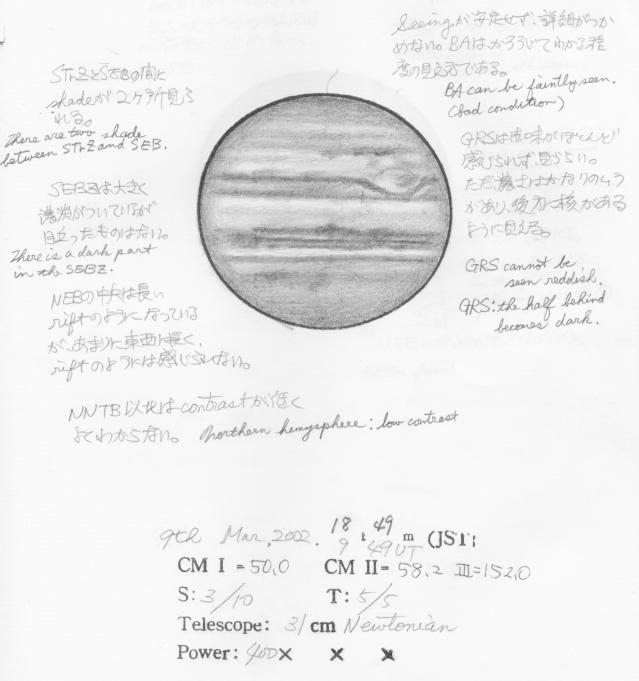 Seeingが安定せず、詳細がつか
めない。BAはかろうじてわかる程
度の見え方である。
BA can be faintly seen.
(bad condition)
STrZとSEBの間に
shadeが2ケ所見ら
れる。
There are two shade
between STrZ and SEB.
GRSは赤味がほとんど
感じられず、見づらい。
ただ濃さはかなりのムラ
があり、後方に核がある
ように見える。
GRS cannot be
seen reddish.
GRS: the half behind
becomes dark.
SEBZは大きく
濃淡がついているが
目立ったものはない。
There is a dark part
in the SEBZ.
NEBの中央は長い
riftのようになっている
が、あまりに東西に長く、
riftのようには感じられない。
NNTB以北はcontrastが低く
よくわからない。 Northern hemysphere: low contrast
9th Mar, 2002. 18 h 49 m (JST)
9 49 UT
CM I = 50.0 CM II = 58.2 III=152.0
S: 3/10 T: 5/5
Telescope: 31 cm Newtonian
Power: 400× × ×